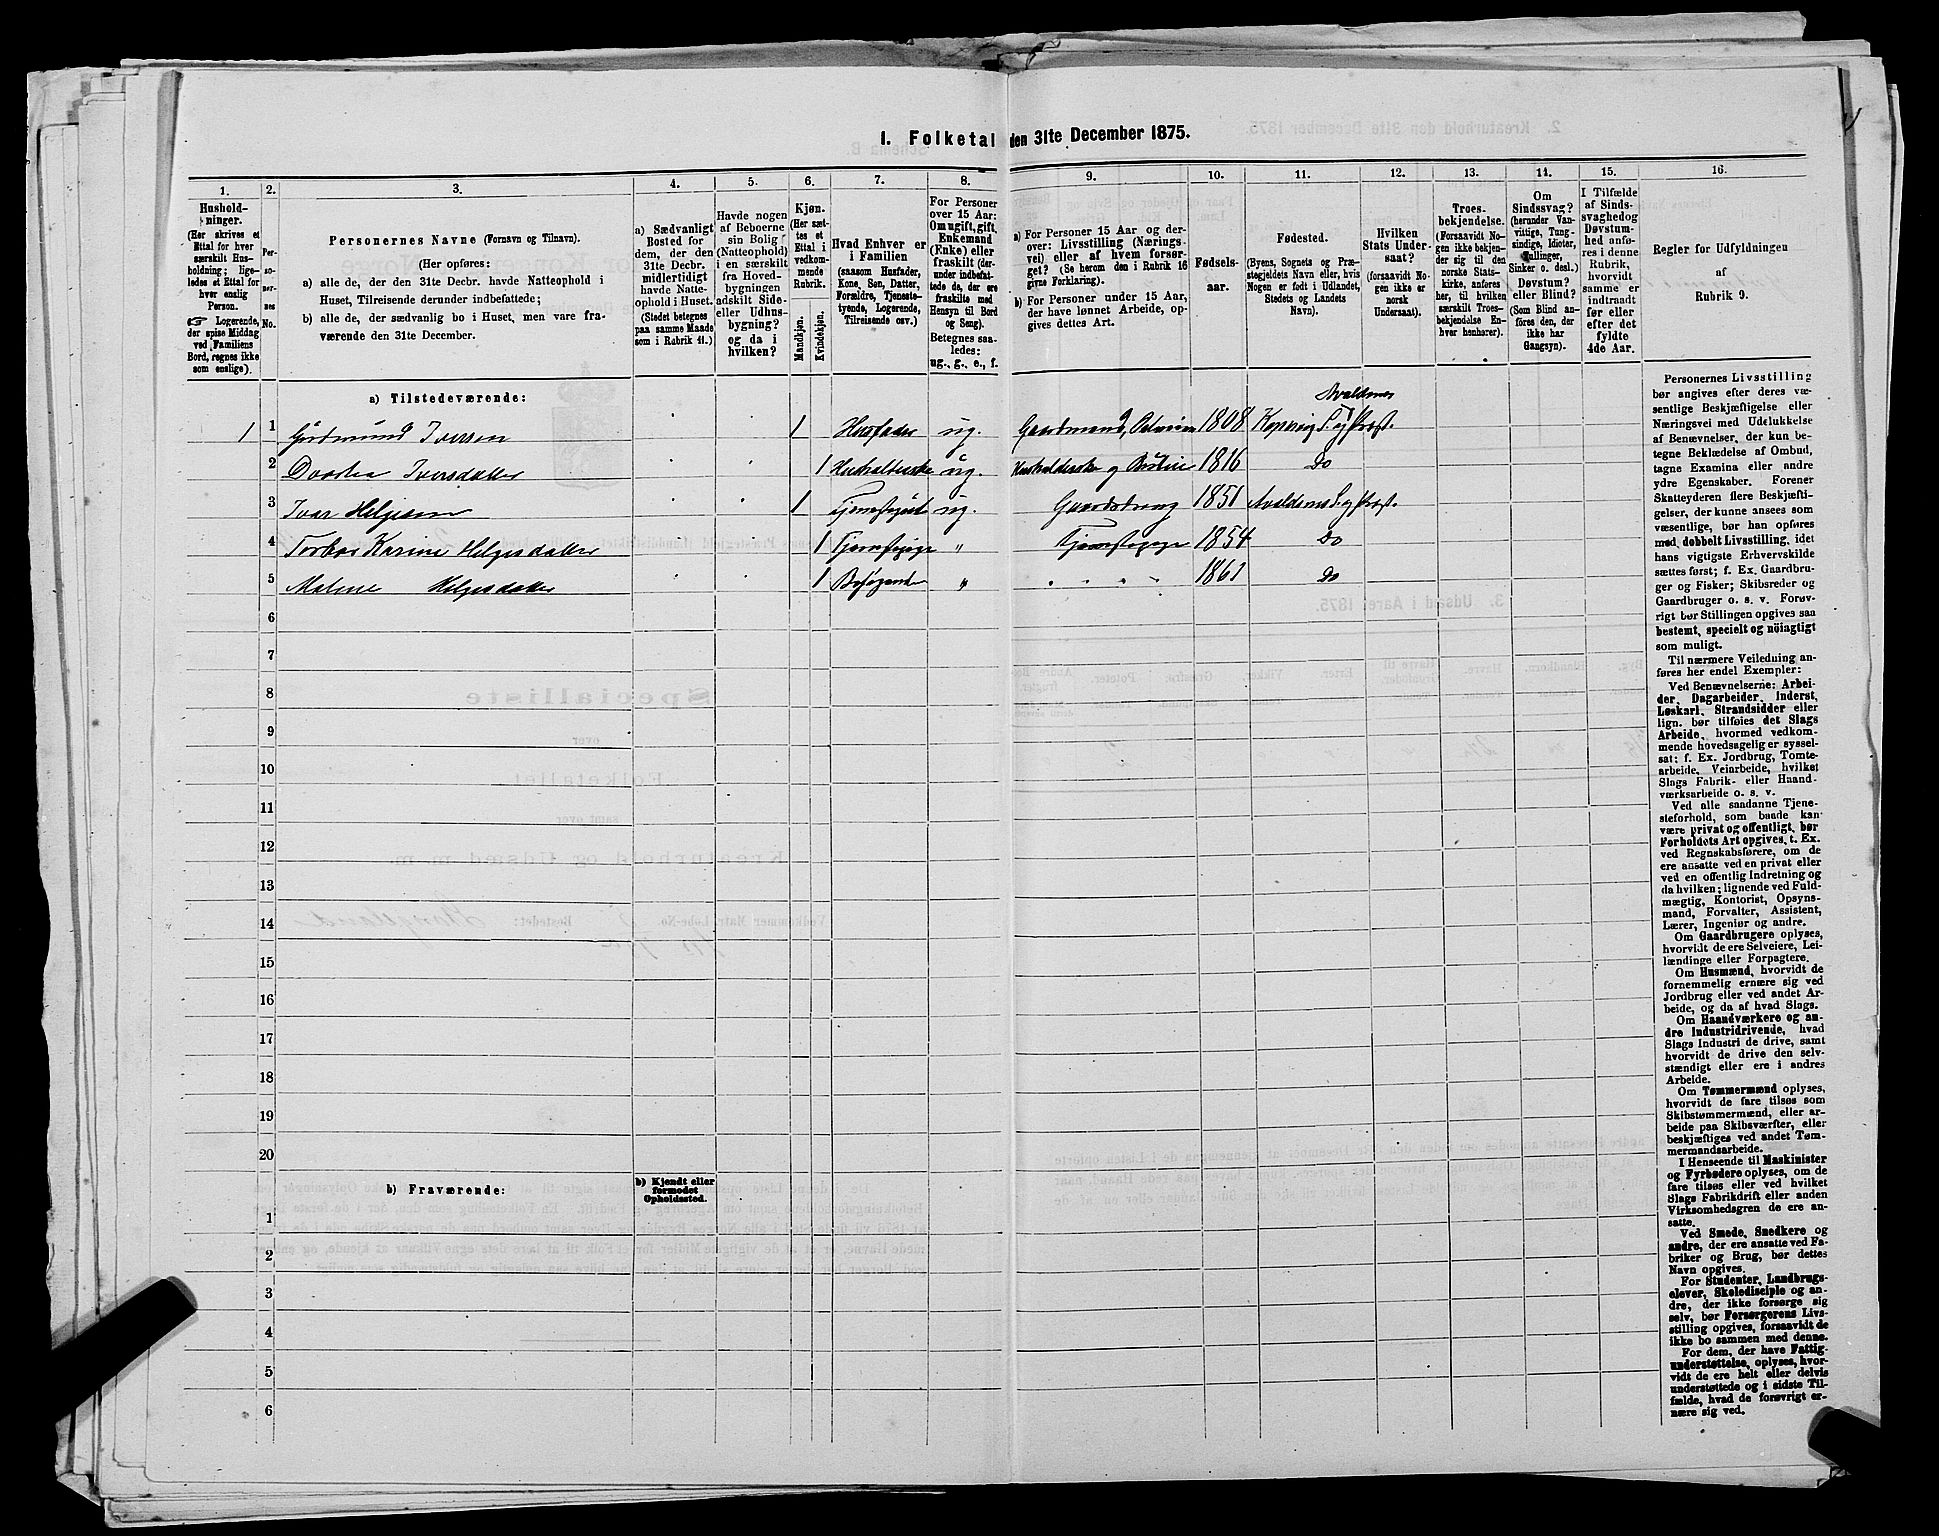 1. Folketal den 31te December 1875.
1. 2. 3. 4. 5. 6. 7. 8. 9. 10. 11. 12. 13. 14. 15. 16.
Hushold-
ninger.
(Her skrives et
Ettal for hver
særskilt Hus-
holdning; lige-
ledes et Ettal for
hver enslig
Person.
☞ Logerende,
der spise Middag
ved Familiens
Bord, regnes ikke
som enslige).
Per-
so-
ner-
nes
No.
Personernes Navne (Fornavn og Tilnavn).
(Her opføres:
a) alle de, der den 31te Decbr. havde Natteophold i
Huset, Tilreisende derunder indbefattede;
b) alle de, der sædvanlig bo i Huset, men vare fra-
værende den 31te December.
a) Sædvanligt
Bosted for
dem, der den
31te Decbr.
midlertidigt
havde Natte-
ophold i Huset.
(Stedet betegnes
paa samme Maade
som i Rubrik 11.)
Havde nogen
af Beboerne
sin Bolig
(Natteophold)
i en særskilt
fra Hoved-
bygningen
adskilt Side-
eller Udhus-
bygning?
og da i
hvilken?
Kjøn.
(Her sæt-
tes et
Ettal i
vedkom-
mende
Rubrik.
Mandkjøn.
Kvindekjøn.
Hvad Enhver er
i Familien
(saasom Husfader,
Kone, Søn, Datter,
Forældre, Tjeneste-
tyende, Logerende,
Tilreisende osv.)
For Personer
over 15 Aar:
Om ugift, gift,
Enkemand
(Enke) eller
fraskilt (der-
under indbefat-
tede de, der ere
fraskilte med
Hensyn til Bord
og Seng).
Betegnes saa-
ledes:
ug., g., e., f.
a) For Personer 15 Aar og der-
over: Livsstilling (Nærings-
vei) eller af hvem forsør-
get? (Se herom den i Rubrik 16
givne Forklaring).
b) For Personer under 15 Aar,
der have lønnet Arbeide, op-
gives dettes Art.
Fødsels-
aar.
Fødested.
(Byens, Sognets og Præ-
stegjeldets Navn eller, hvis
Nogen er født i Udlandet,
Stedets og Landets
Navn).
Hvilken
Stats Under-
saat?
(forsaavidt No-
gen ikke er
norsk
Undersaat).
Troes-
bekjendelse.
(Forsaavidt No-
gen ikke bekjen-
der sig til den
norske Stats-
kirke, anføres
her, til hvilken
særskilt Troes-
bekjendelse En-
hver henhører).
Om
Sindssvag?
(herunder Van-
vittige, Tung-
sindige, Idioter,
Tullinger,
Sinker o. desl.)
Døvstum?
eller Blind?
(Som Blind an-
føres den, der
ikke har
Gangsyn).
I Tilfælde
af Sinds-
svaghed og
Døvstum-
hed anfø-
res i denne
Rubrik,
hvorvidt
samme er
indtraadt
før eller
efter det
fyldte
4de Aar.
Regler for Udfyldningen
af
Rubrik 9.
a) Tilstedeværende:
Avaldsnes
1 1 Gudmund Iversen 1 Husfader ug. Gaardmand, Selveier 1808 Kopervig S. og Præst.
2 Dorthea Iversdatter 1 ug. 1816 Do
3 Ivar Helgesen 1 ug. 1851 Avaldsnes S. og Præst.
4 Karine Helgesdatter 1 Tjenestepige " Tjenestepige 1854 Do
5 Malene Helgesdatter 1 Besøgende " 1861 Do
6
7
8
9
10
11
12
13
14
15
16
17
18
19
20
b) Fraværende:
b) Kjendt eller
formodet
Opholdssted.
1
2
3
4
5
6
Personernes Livsstilling
bør angives efter deres væ-
sentlige Beskjæftigelse eller
Næringsvei med Udelukkelse
af Benævnelser, der kun be-
tegne Beklædelse af Ombud,
tagne Examina eller andre
ydre Egenskaber. Forener
Skatteyderen flere Beskjæfti-
gelser, der kunne ansees som
væsentlige, bør han opføres
med dobbelt Livsstilling, idet
hans vigtigste Erhvervskilde
sættes først; f. Ex. Gaardbru-
ger og Fisker; Skibsreder og
Gaardbruger o. s. v. Forøv-
rigt bør Stillingen opgives saa
bestemt, specielt og nöiagtigt
som muligt.
Til nærmere Veiledning an-
føres her endel Exempler:
Ved Benævnelserne: Arbei-
der, Dagarbeider, Inderst,
Løskarl, Strandsidder eller
lign. bør tilføies det Slags
Arbeide, hvormed vedkom-
mende hovedsagelig er syssel-
sat; f. Ex. Jordbrug, Tomte-
arbeide, Veiarbeide, hvilket
Slags Fabrik- eller Haand-
værksarbeide o. s. v.
Ved alle saadanne Tjene-
steforhold, som baade kan
være privat og offentligt, bør
Forholdets Art opgives, t. Ex.
ved Regnskabsførere, om de
ere ansatte ved en privat eller
ved en offentlig Indretning og
da hvilken; lignende ved Fuld-
mægtig, Kontorist, Opsyns-
mand, Forvalter, Assistent,
Lærer, Ingeniør og andre.
Om Gaardbrugere oplyses,
hvorvidt de ere Selveiere, Lei-
lændinge eller Forpagtere.
Om Husmænd, hvorvidt de
fornemmelig ernære sig ved
Jordbrug eller ved andet Ar-
beide, og da af hvad Slags.
Om Haandværkere og an-
dre Industridrivende, hvad
Slags Industri de drive, samt
hvorvidt de drive den selv-
stændigt eller ere i andres
Arbeide.
Om Tømmermænd oplyses,
hvorvidt de fare tilsøs som
Skibstømmermænd, eller ar-
beide paa Skibsværfter, eller
beskjæftiges ved andet Tøm-
mermandsarbeide.
I Henseende til Maskinister
og Fyrbødere oplyses, om de
fare tilsøs eller ved hvilket
Slags Fabrikdrift eller anden
Virksomhedsgren de ere an-
satte.
Ved Smede, Snedkere og
andre, der ere ansatte ved Fa-
briker og Brug, bør dettes
Navn opgives.
For Studenter, Landbrugs-
elever, Skoledisciple og an-
dre, der ikke forsørge sig
selv, bør Forsørgerens Livs-
stilling opgives, forsaavidt de
ikke bo sammen med denne.
For dem, der have Fattig-
understøttelse, oplyses, hvor-
vidt de ere helt eller delvis
understøttede og i sidste Til-
fælde, hvad de forøvrigt er-
nære sig ved.